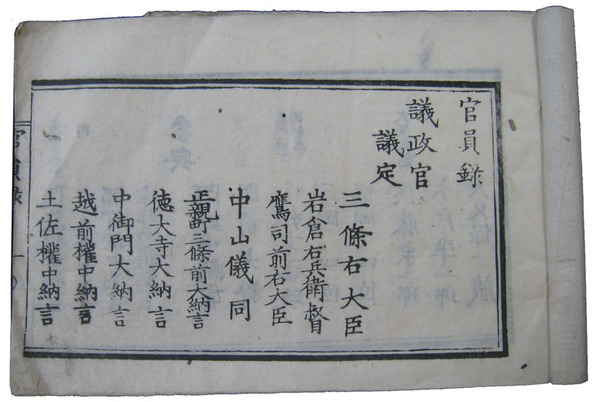 官員錄
議政官
議定
三條右大臣
岩倉右兵衛督
鷹司前右大臣
中山儀同
正親町三條前大納言
徳大寺大納言
中御門大納言
越前權中納言
土佐權中納言
官員錄 一